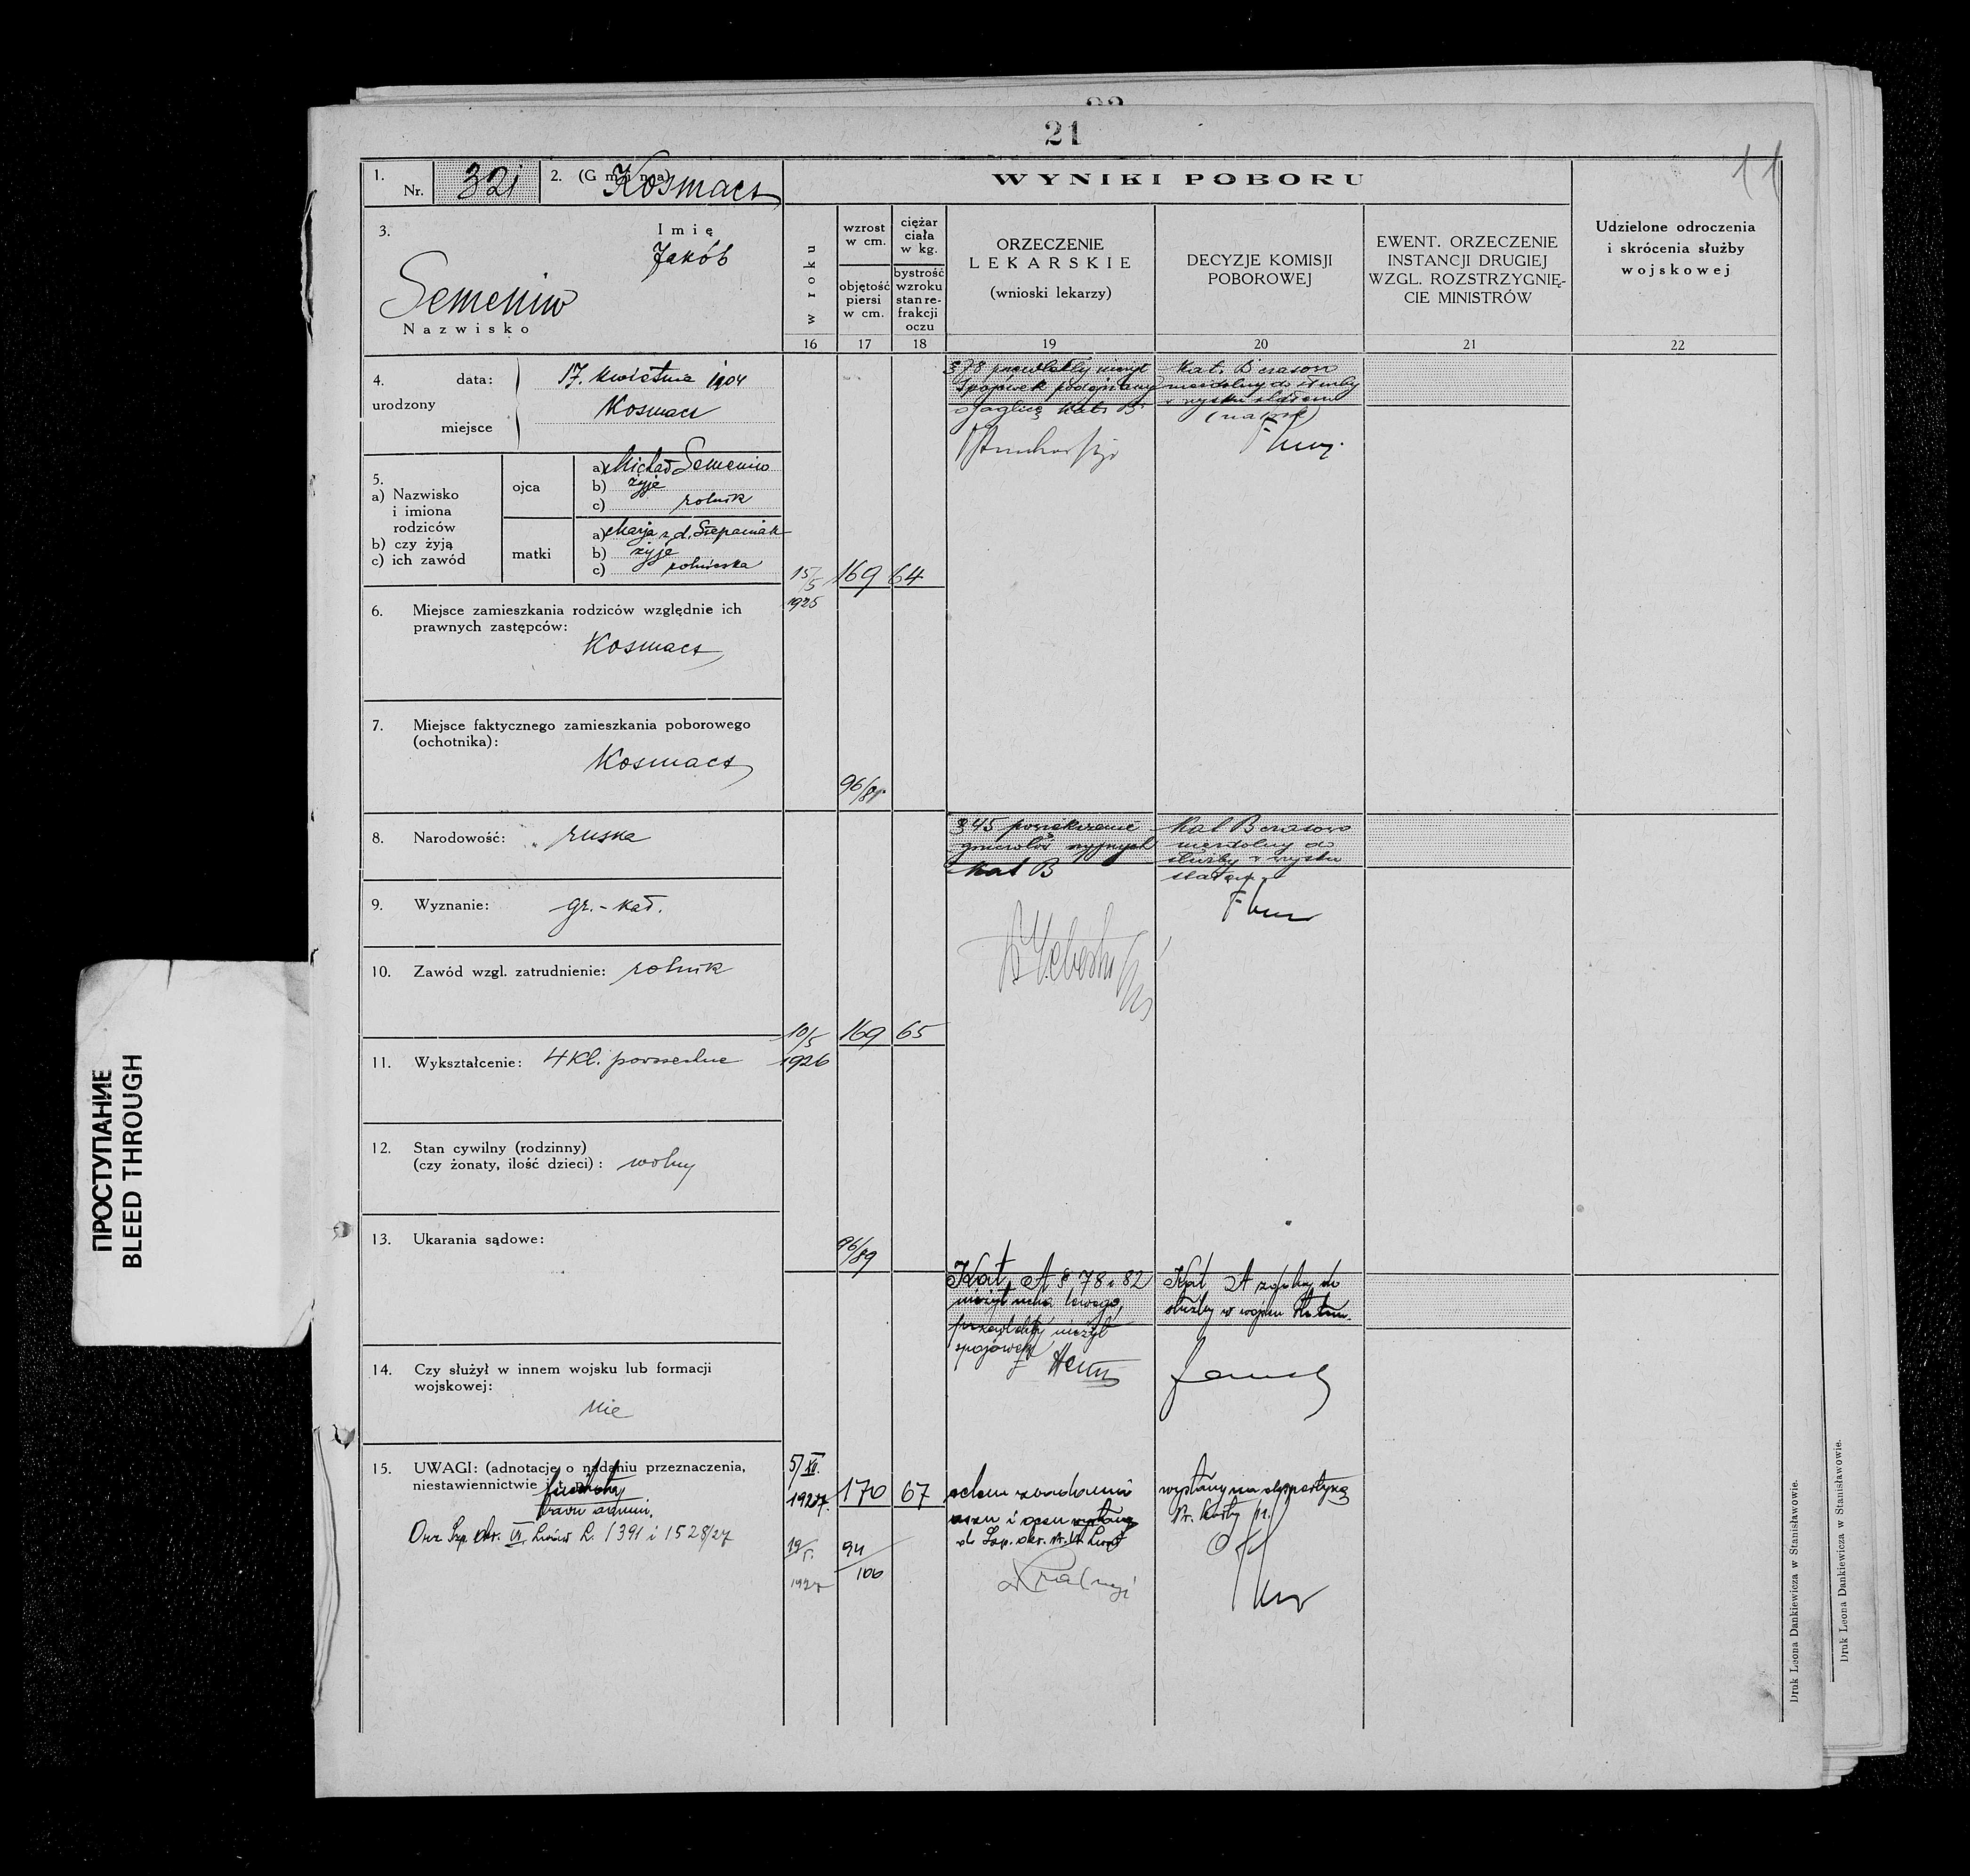 21
1.
Nr. 321
2. (Gmina) Kosmacz
WYNIKI POBORU
11
3.
Imię
Jakób
Semeniw
Nazwisko
w roku
wzrost
w cm.
objętość
piersi
w cm.
ciężar
ciała
w kg.
bystrość
wzroku
stan re-
frakcji
oczu
ORZECZENIE
LEKARSKIE
(wnioski lekarzy)
DECYZJE KOMISJI
POBOROWEJ
EWENT. ORZECZENIE
INSTANCJI DRUGIEJ
WZGL. ROZSTRZYGNIĘ-
CIE MINISTRÓW
Udzielone odroczenia
i skrócenia służby
wojskowej
16 17 18 19 20 21 22
4. data: 17. kwietnia 1904
urodzony
Kosmacz
miejsce
5.
a) Nazwisko
i imiona
rodziców
b) czy żyją
c) ich zawód
ojca
a) Michał Semeniw
b) żyje
c) rolnik
matki
a) Marja z d. Stepaniak
b) żyje
c) rolniczka
§ 78 przewlekły nieżyt
spojówek podejrzany
o jaglicę Kat. B
Kat. B czasowo
niezdolny do służby
w wojsku stałem
15/5
1925
169 64
96/81
6. Miejsce zamieszkania rodziców względnie ich
prawnych zastępców:
Kosmacz
7. Miejsce faktycznego zamieszkania poborowego
(ochotnika):
Kosmacz
8. Narodowość: ruska
9. Wyznanie: gr.-kat.
10. Zawód wzgl. zatrudnienie: rolnik
§ 45 powiększenie
gruczołów szyjnych
Kat B
Kat B czasowo
niezdolny do
służby w wojsku
stałem
10/5
1926
169 65
96/89
11. Wykształcenie: 4 kl. powszechne
12. Stan cywilny (rodzinny)
(czy żonaty, ilość dzieci): wolny
13. Ukarania sądowe:
14. Czy służył w innem wojsku lub formacji
wojskowej:
nie
Kat. A § 78 i 82
nieżyt ucha lewego,
przewlekły nieżyt
spojówek
Kat A zdolny do
służby w wojsku stałem.
15. UWAGI: (adnotacje o nadaniu przeznaczenia,
niestawiennictwie i t. p.)
piechoty
Orz. Szp. okr. VI. Lwów L. 1391 i 1528/27
5/XII.
1927.
170 67
19/5.
1927
94/100
celem zbadania
uszu i oczu wysłany
do Szp. okr. Nr. VI Lwów
wysłany na ekspertyzę
Druk Leona Dankiewicza w Stanisławowie.
Druk Leona Dankiewicza w Stanisławowie.
ПРОСТУПАНИЕ
BLEED THROUGH